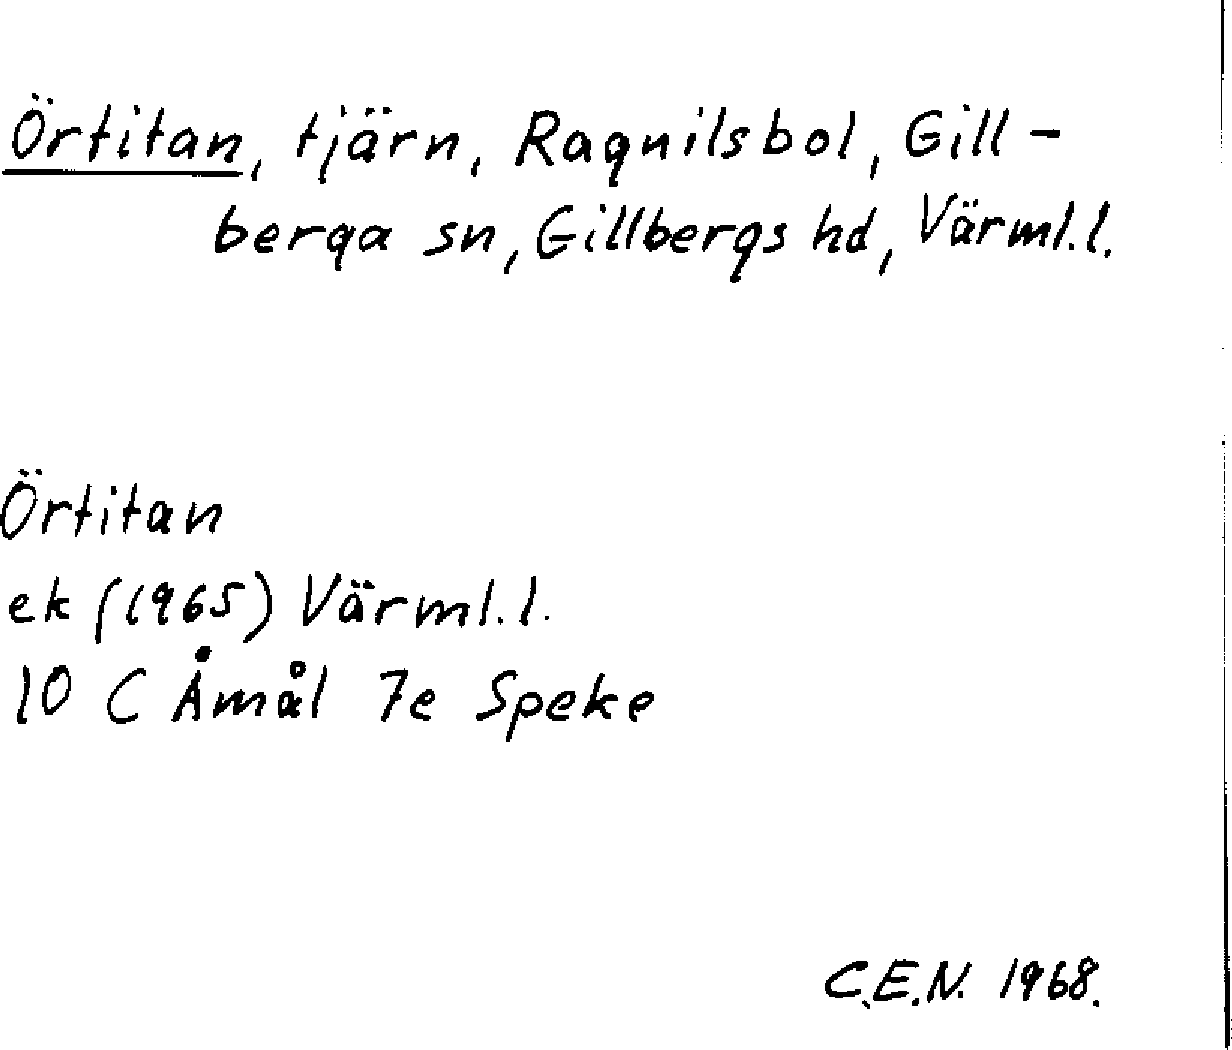 Örtitan, tjärn, Ragnilsbol, Gill-
berga sn, Gillbergs hd, Värml. l.
Örtitan
ek (1965) Värml. l.
10 C Åmål 7e Speke
C.E.N. 1968.